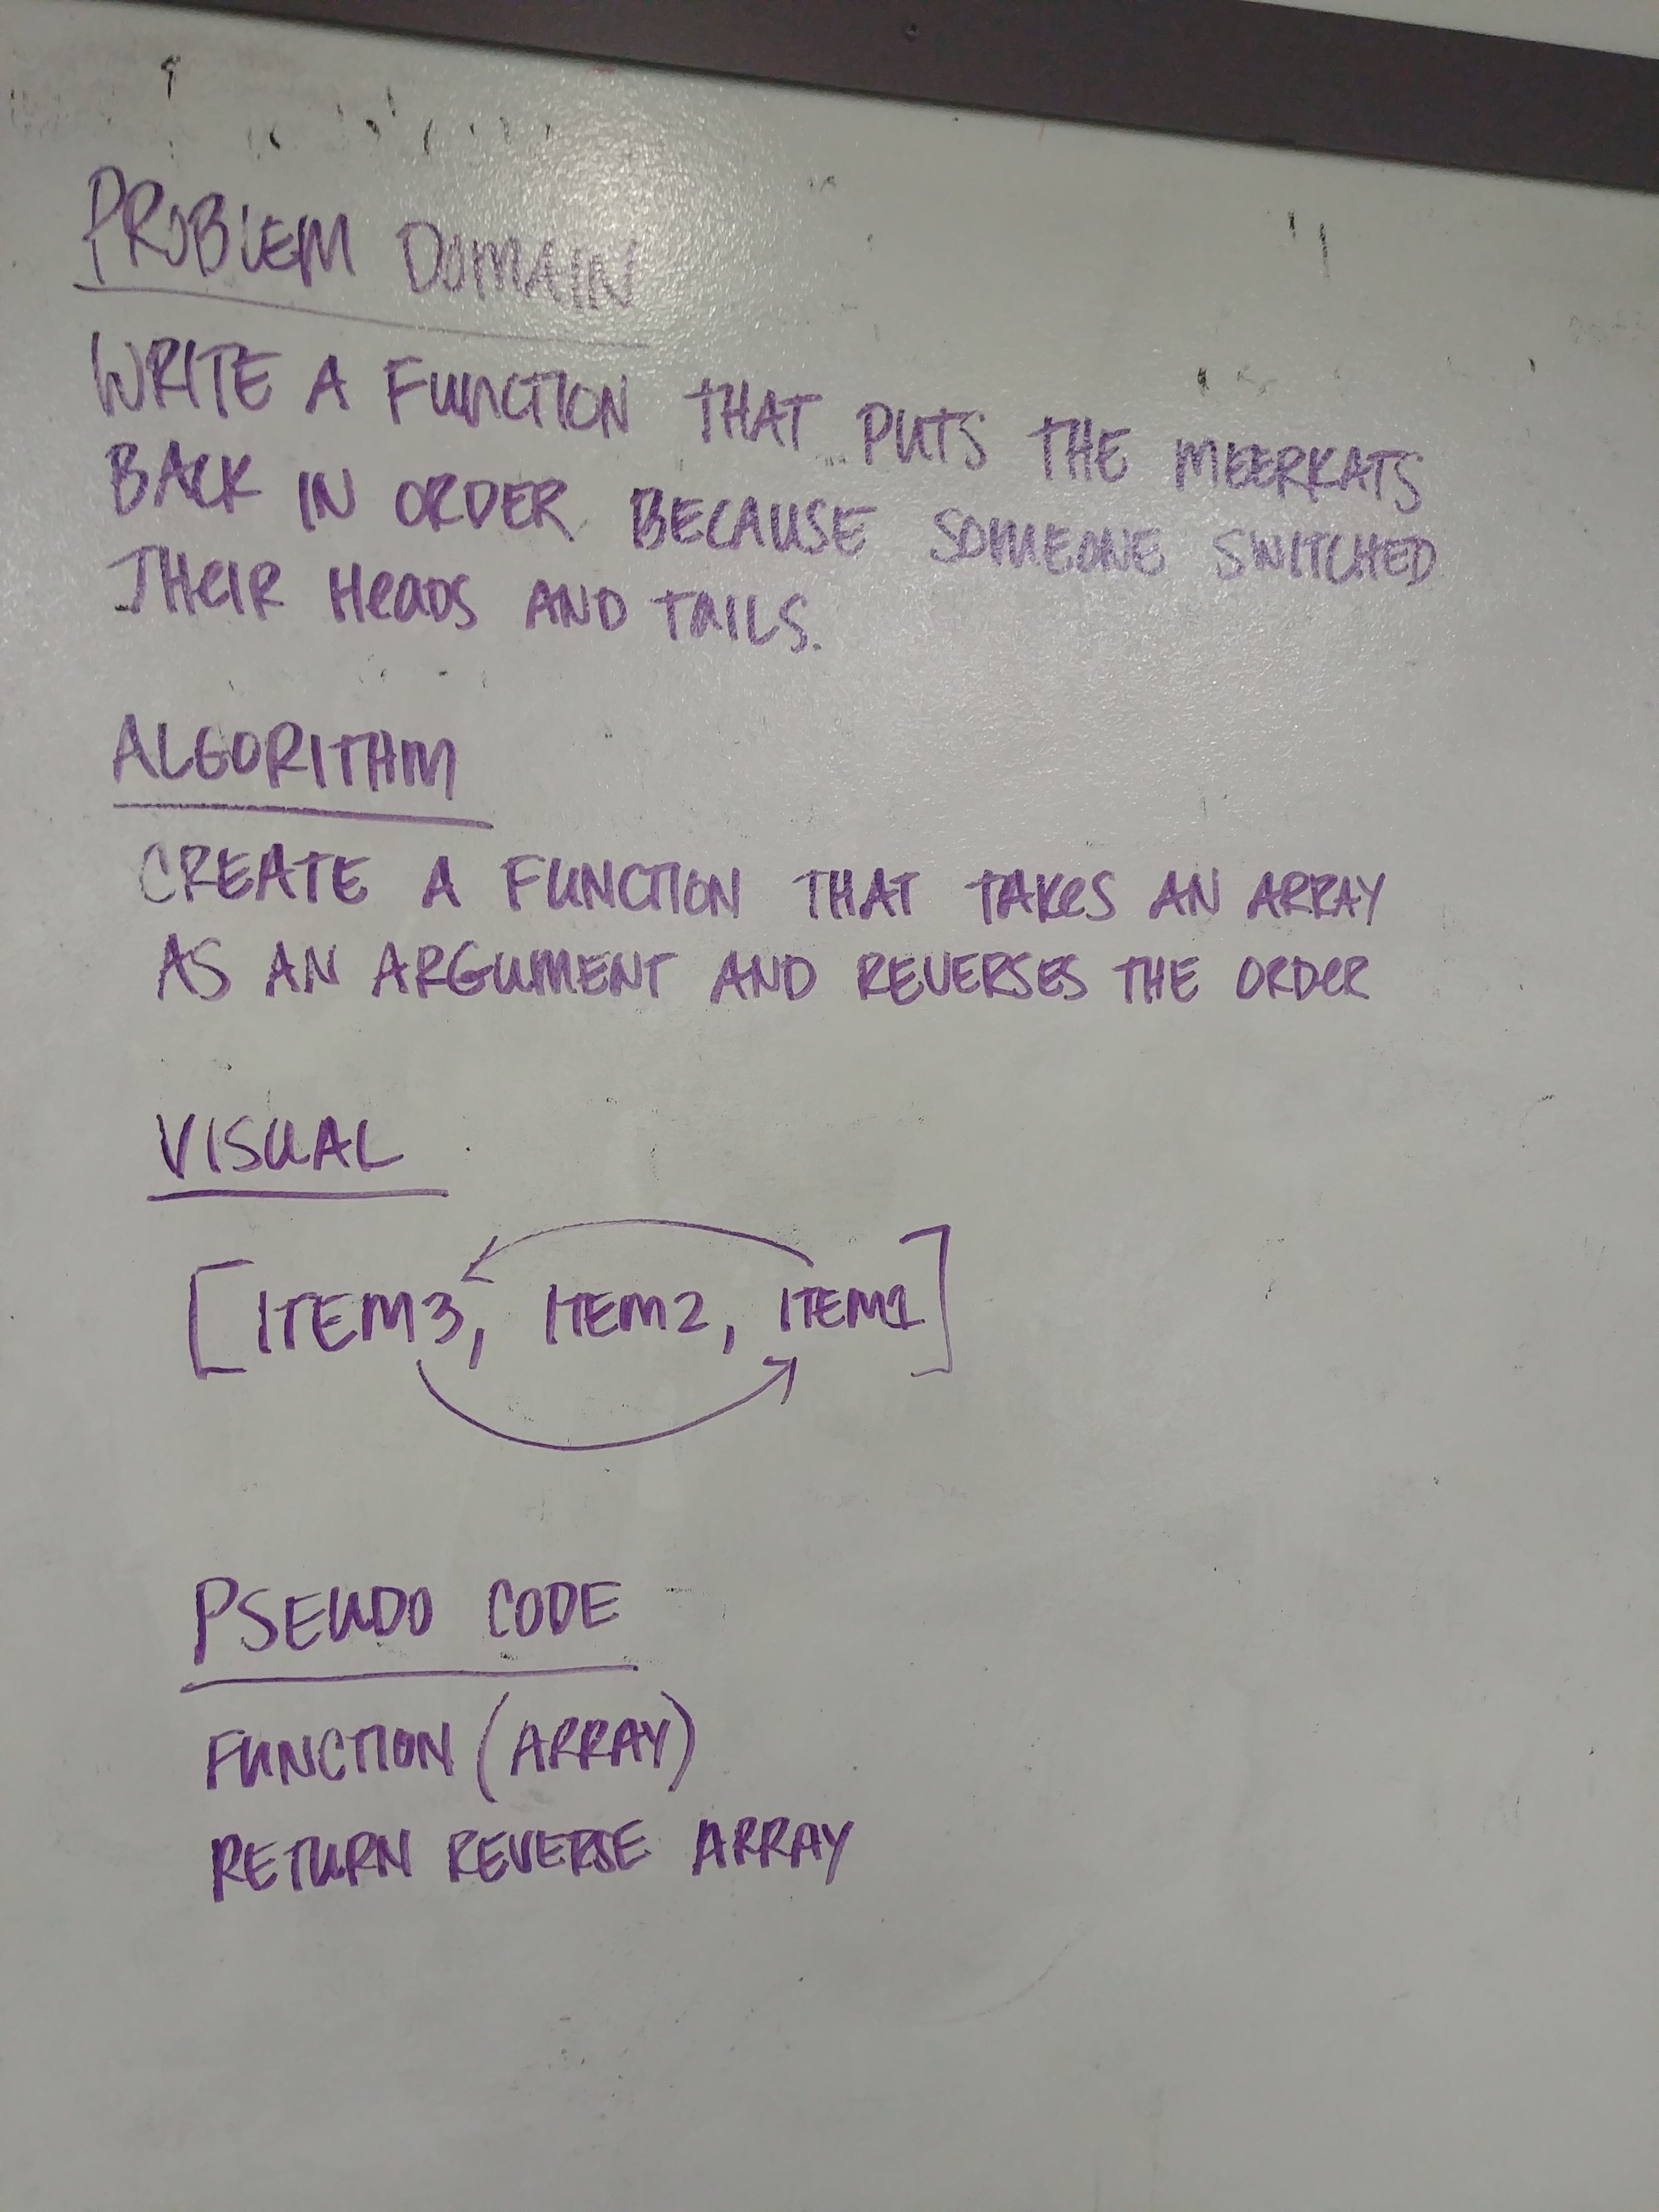 PROBLEM DOMAIN
WRITE A FUNCTION THAT PUTS THE MEERKATS
BACK IN ORDER BECAUSE SOMEONE SWITCHED
THEIR HEADS AND TAILS.
ALGORITHM
CREATE A FUNCTION THAT TAKES AN ARRAY
AS AN ARGUMENT AND REVERSES THE ORDER
VISUAL
[ITEM3, ITEM2, ITEM1]
PSEUDO CODE
FUNCTION (ARRAY)
RETURN REVERSE ARRAY